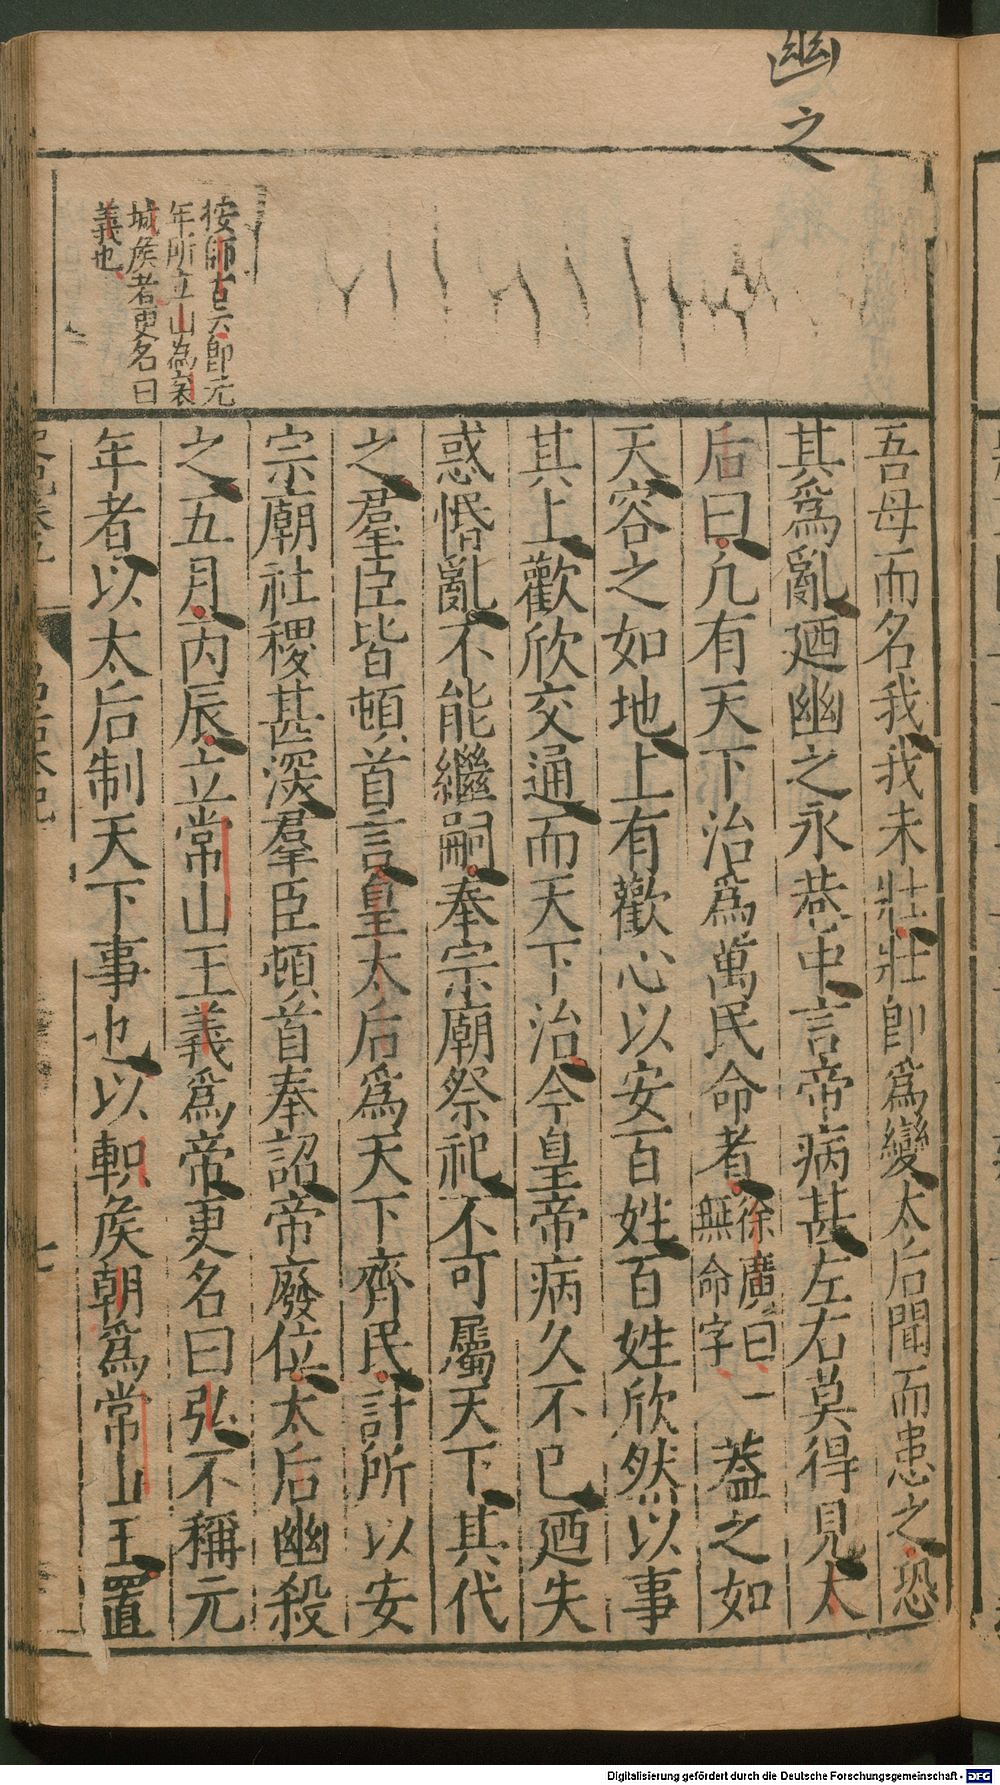 幽之
吾母而名我我未壯壯即為變太后聞而患之恐
其爲亂廼幽之永巷中言帝病甚左右莫得見太
后曰凢有天下治爲萬民命者徐廣曰一無命字蓋之如
天容之如地上有歡心以安百姓百姓欣然以事
其上歡欣交通而天下治今皇帝病久不已廼失
惑惛亂不能繼嗣奉宗廟祭祀不可屬天下其代
之羣臣皆頓首言皇太后爲天下齊民計所以安
宗廟社稷甚深羣臣頓首奉詔帝廢位太后幽殺
之五月丙辰立常山王義爲帝更名曰弘不稱元
年者以太后制天下事也以軹侯朝爲常山王置
按師古云即元
年所立山為襄
城侯者更名曰
義也
七
Digitalisierung gefördert durch die Deutsche Forschungsgemeinschaft - DFG